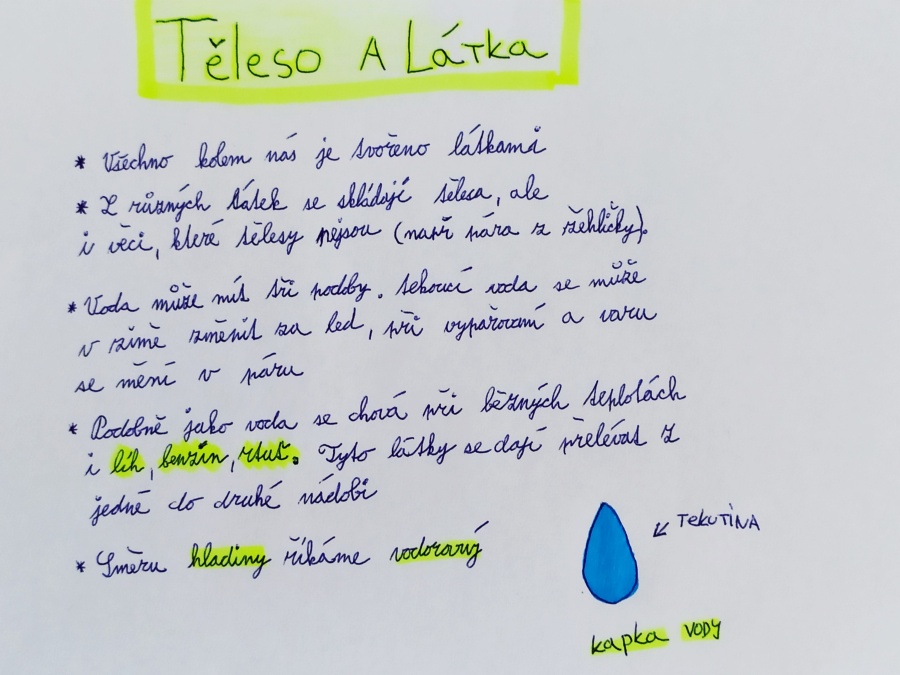 Těleso a Látka
* Všechno kolem nás je tvořeno látkami
* Z různých látek se skládají tělesa, ale
i věci, které tělesy nejsou (např pára z žehličky).
* Voda může mít tři podoby. Tekoucí voda se může
v zimě změnit na led, při vypařovaní a varu
se mění v páru
* Podobně jako voda se chová při běžných teplotách
i líh, benzín, rtuť. Tyto látky se dají přelévat z
jedné do druhé nádobi
* Směru hladiny říkáme vodorovný
↙ TEKUTINA
kapka VODY